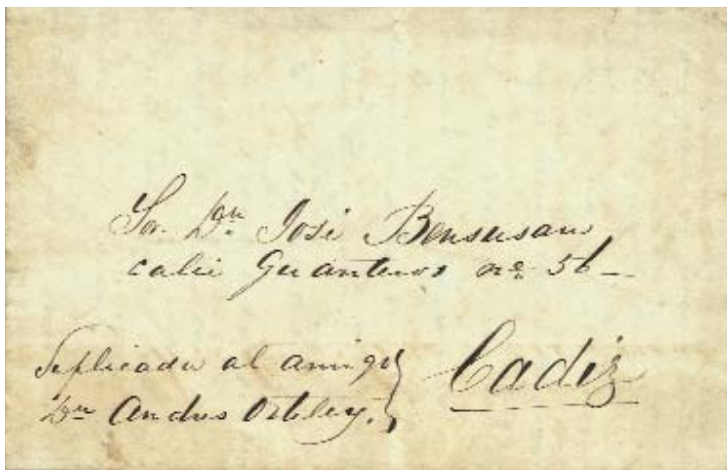 Sor. Dn. José Bensusan
calle Guanteros no. 56
Suplicada al amigo
Dn Andres
Cadiz